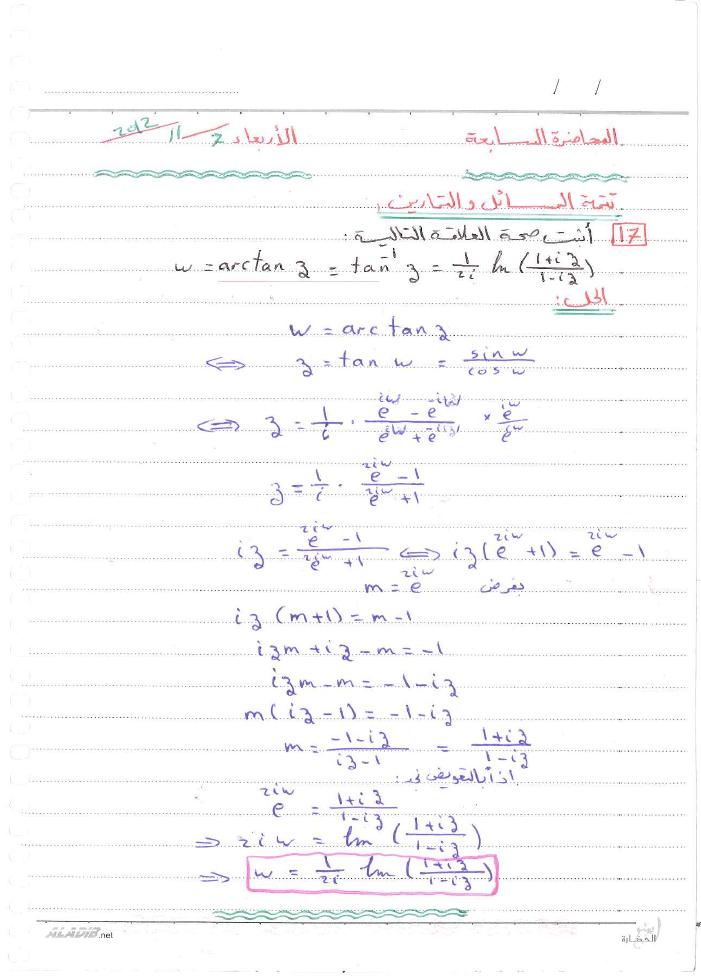 / /
المحاضرة السابعة الأربعاء 7/11/2012
تتمة المسائل والتمارين:
17 أثبت صحة العلاقة التالية:
w = arctan z = tan⁻¹ z = 1/2i ln((1+iz)/(1-iz))
الحل:
w = arc tan z
⇔ z = tan w = sin w / cos w
⇔ z = 1/i · (e^iw - e^-iw)/(e^iw + e^-iw) × e^iw/e^iw
z = 1/i · (e^2iw - 1)/(e^2iw + 1)
iz = (e^2iw - 1)/(e^2iw + 1) ⇔ iz(e^2iw + 1) = e^2iw - 1
m = e^2iw بفرض
iz (m+1) = m-1
izm + iz - m = -1
izm - m = -1 - iz
m(iz - 1) = -1 - iz
m = (-1-iz)/(iz-1) = (1+iz)/(1-iz)
إذاً بالتعويض في:
e^2iw = (1+iz)/(1-iz)
⇒ 2iw = ln((1+iz)/(1-iz))
⇒ w = 1/2i ln((1+iz)/(1-iz))
ALADIB.net
الحضارة